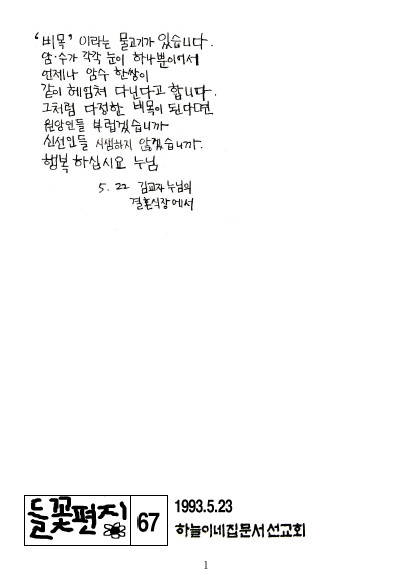 '비목' 이라는 물고기가 있습니다.
암·수가 각각 눈이 하나뿐이어서
언제나 암수 한쌍이
같이 헤엄쳐 다닌다고 합니다.
그처럼 다정한 비목이 된다면
원앙인들 부럽겠습니까
신선인들 시샘하지 않겠습니까.
행복 하십시요 누님
5. 22 김교자 누님의
결혼식장에서
들꽃편지 67
1993.5.23
하늘이네집문서선교회
1